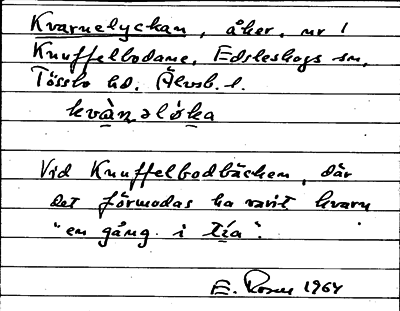 Kvarnelyckan, åker, nr 1
Knuffelbodane, Edsleskogs sn,
Tössbo hd. Älvsb. l.
kvàn̥əlýka
Vid Knuffelbodbäcken, där
det förmodas ha varit kvarn
"en gång i tía".
E. Rosell 1964